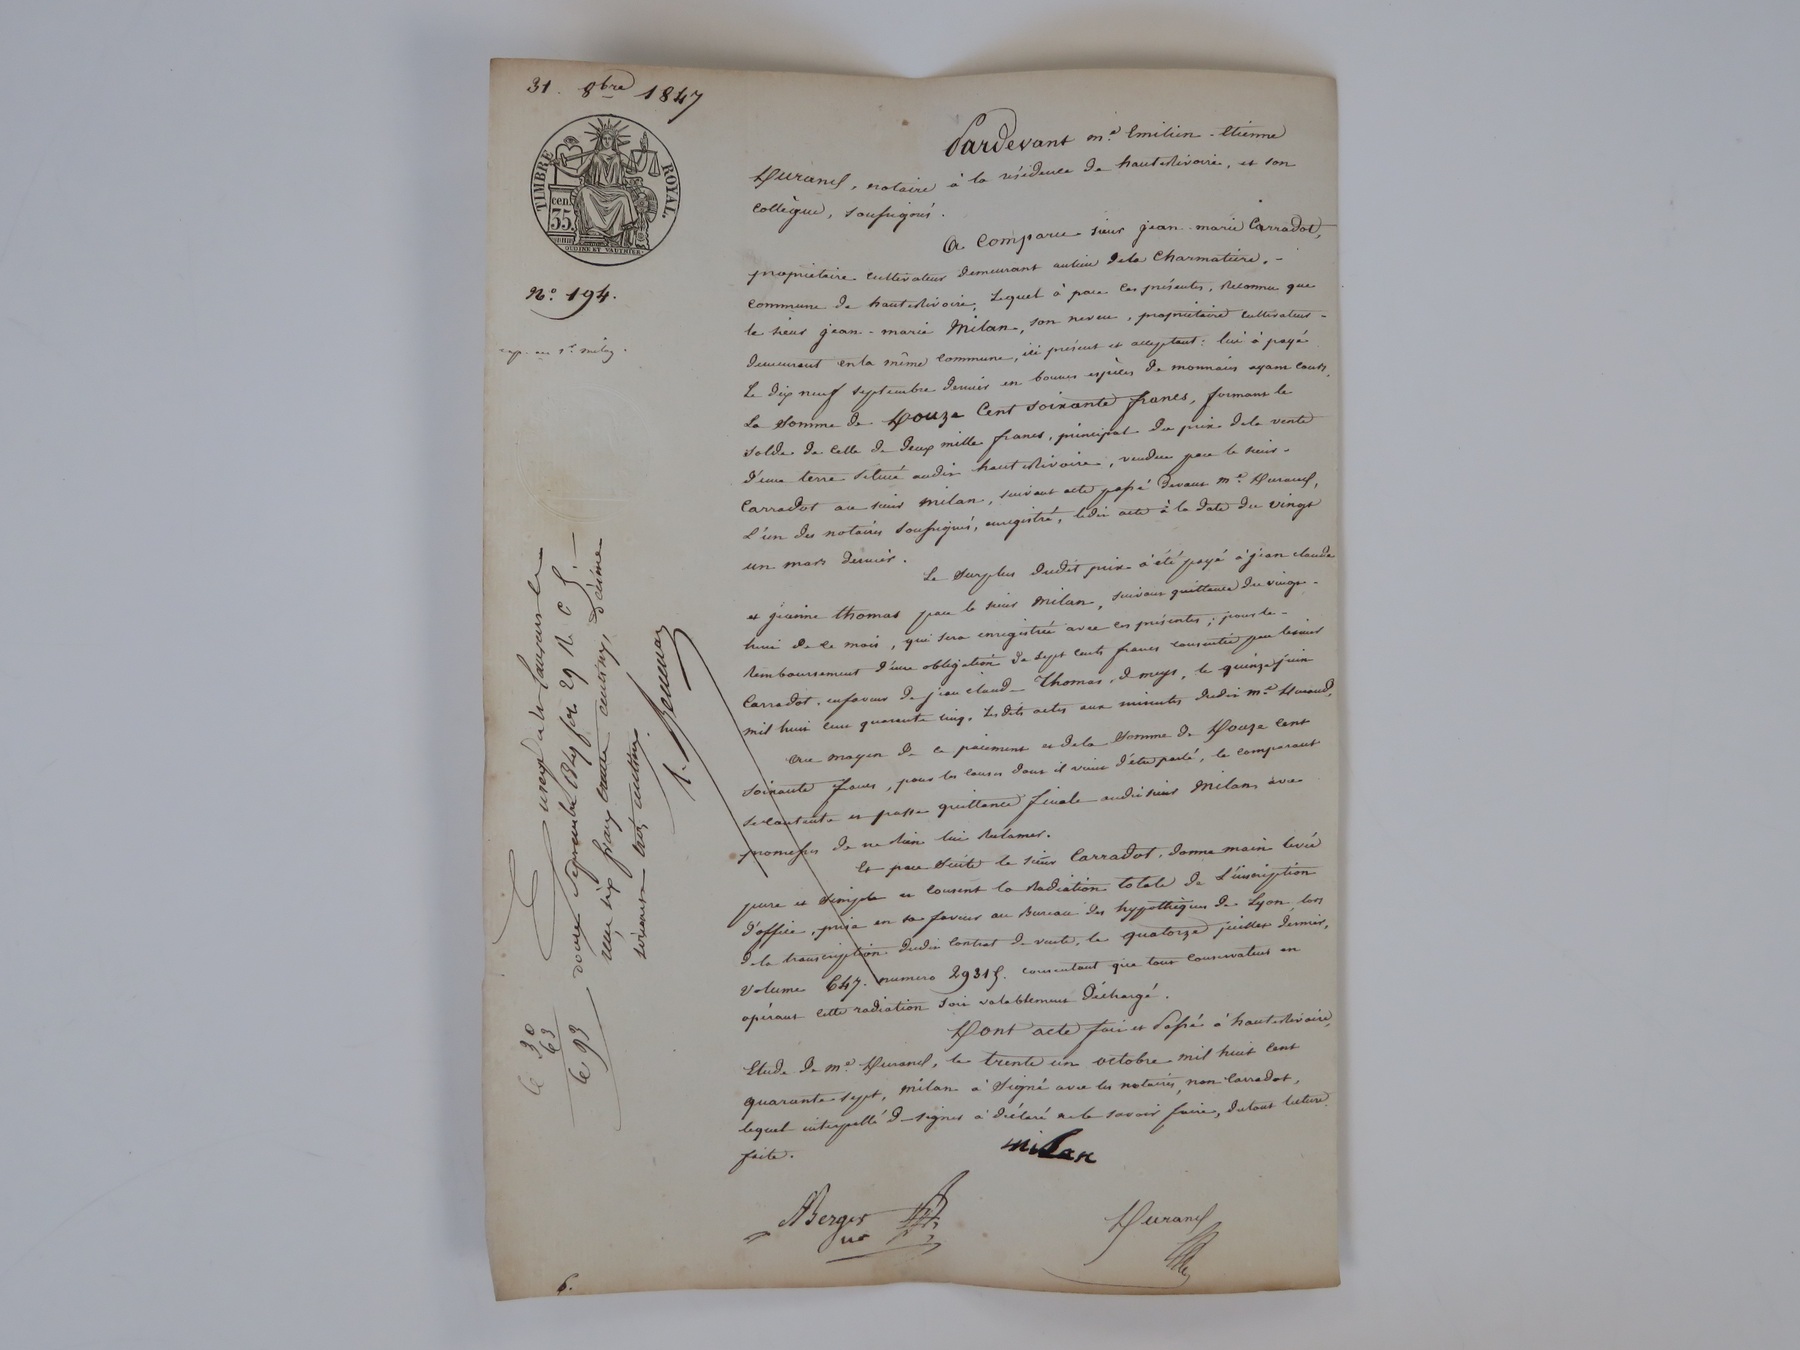 31 8bre 1847
TIMBRE ROYAL.
cen. 35.
OUDINÉ ET VAUTHIER.
N.º 194.
Pardevant m.e Emilien-Etienne
Durand, notaire à la résidence de hauterivoire, et son
collègue, soussignés.
A Comparu sieur jean-marie Carradot,
propriétaire cultivateur demeurant au lieu dela Charmatière,
commune de hauterivoire, Lequel à par ces présentes, Reconnu que
le sieur jean-marie Milan, son neveu, propriétaire cultivateur
demeurant en la même commune, ici présent et acceptant: lui à payé
Le dix neuf septembre dernier en bonnes espèces de monnaies ayant cours,
La Somme de Douze Cent soixante francs, formant le
solde de celle de deux mille francs, principal du prix dela vente
d'une terre située audit hauterivoire, vendue par le sieur
Carradot au sieur Milan, suivant acte passé devant m.e Durand,
L'un des notaires soussignés, enregistré, ledit acte à la date du vingt
un mars dernier.
Le Surplus dudit prix à été payé à jean claude
et jeanne thomas par le sieur Milan, suivant quittance du vingt
huit de ce mois, qui sera enregistrée avec ces présentes; pour le
Remboursement d'une obligation de sept cents francs consentie par le sieur
Carradot, enfaveur de jean claude Thomas, de meys, le quinze juin
mil huit cent quarante cinq. Lesdits actes aux minutes dudit m.e Durand,
Au moyen de ce paiement et dela Somme de Douze Cent
soixante francs, pour les causes dont il vient d'être parlé, le comparant
se contente et passe quittance finale audit sieur Milan, avec
promesse de ne rien lui Réclamer.
Et par Suite le sieur Carradot, donne main levée
pure et simple et consent la Radiation totale de L'inscription
d'office, prise en sa faveur au Bureau des hypothèques de Lyon, lors
dela transcription dudit contrat de vente, le quatorze juillet dernier,
Volume 647. numéro 29315. consentant que tout Conservateur en
opérant cette radiation soit valablement Déchargé.
Dont acte fait et Passé à hauterivoire,
Etude de m.e Durand, le trente un octobre mil huit cent
quarante sept, Milan à Signé avec les notaires, non Carradot,
lequel interpellé de signer à déclaré ne le savoir faire, dutout lecture
faite.
milan
ABerger
Durand
6.
30
63
93